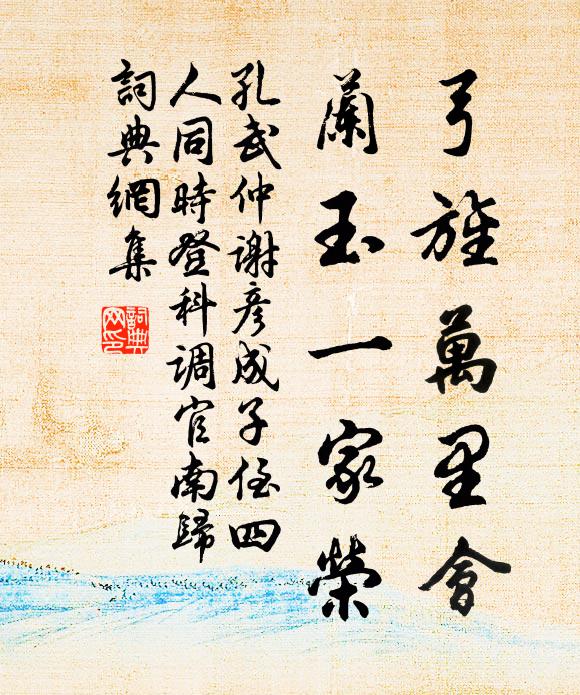 弓旌萬里會
蘭玉一家榮
孔武仲謝彥成子侄四
人同時登科調官南歸
詞典網集
詞典网印